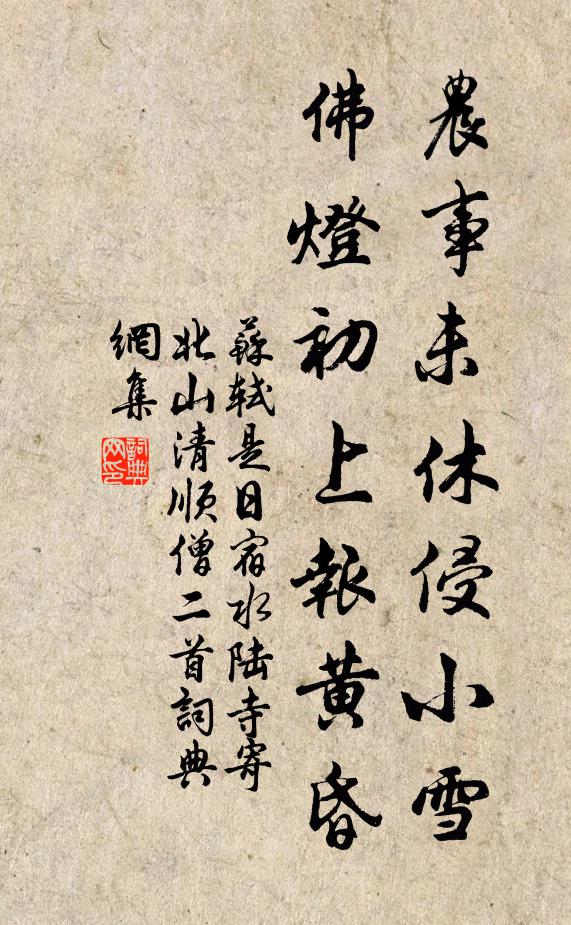 農事未休侵小雪
佛燈初上報黄昏
蘇軾是日宿水陆寺寄
北山清順僧二首詞典
網集
詞典
网印